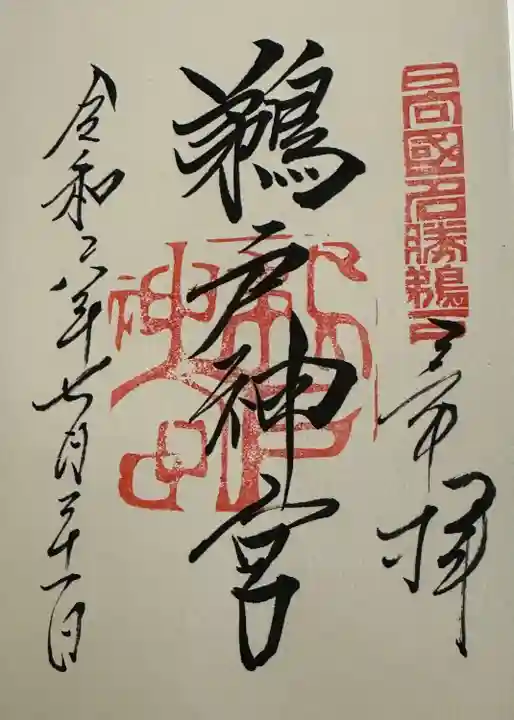 日向國名勝鵜戸
奉拝
鵜戸神宮
令和六年七月二十一日